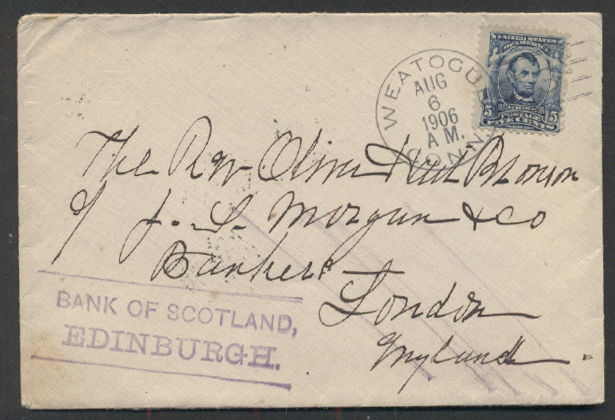 WEATOGUE
AUG
6
1906
A M.
CONN.
UNITED STATES
OF AMERICA
5 POSTAGE 5
FIVE CENTS
The Rev Oliver Bronson
c/ J. S. Morgan & Co
Bankers
London
England
BANK OF SCOTLAND,
EDINBURGH.